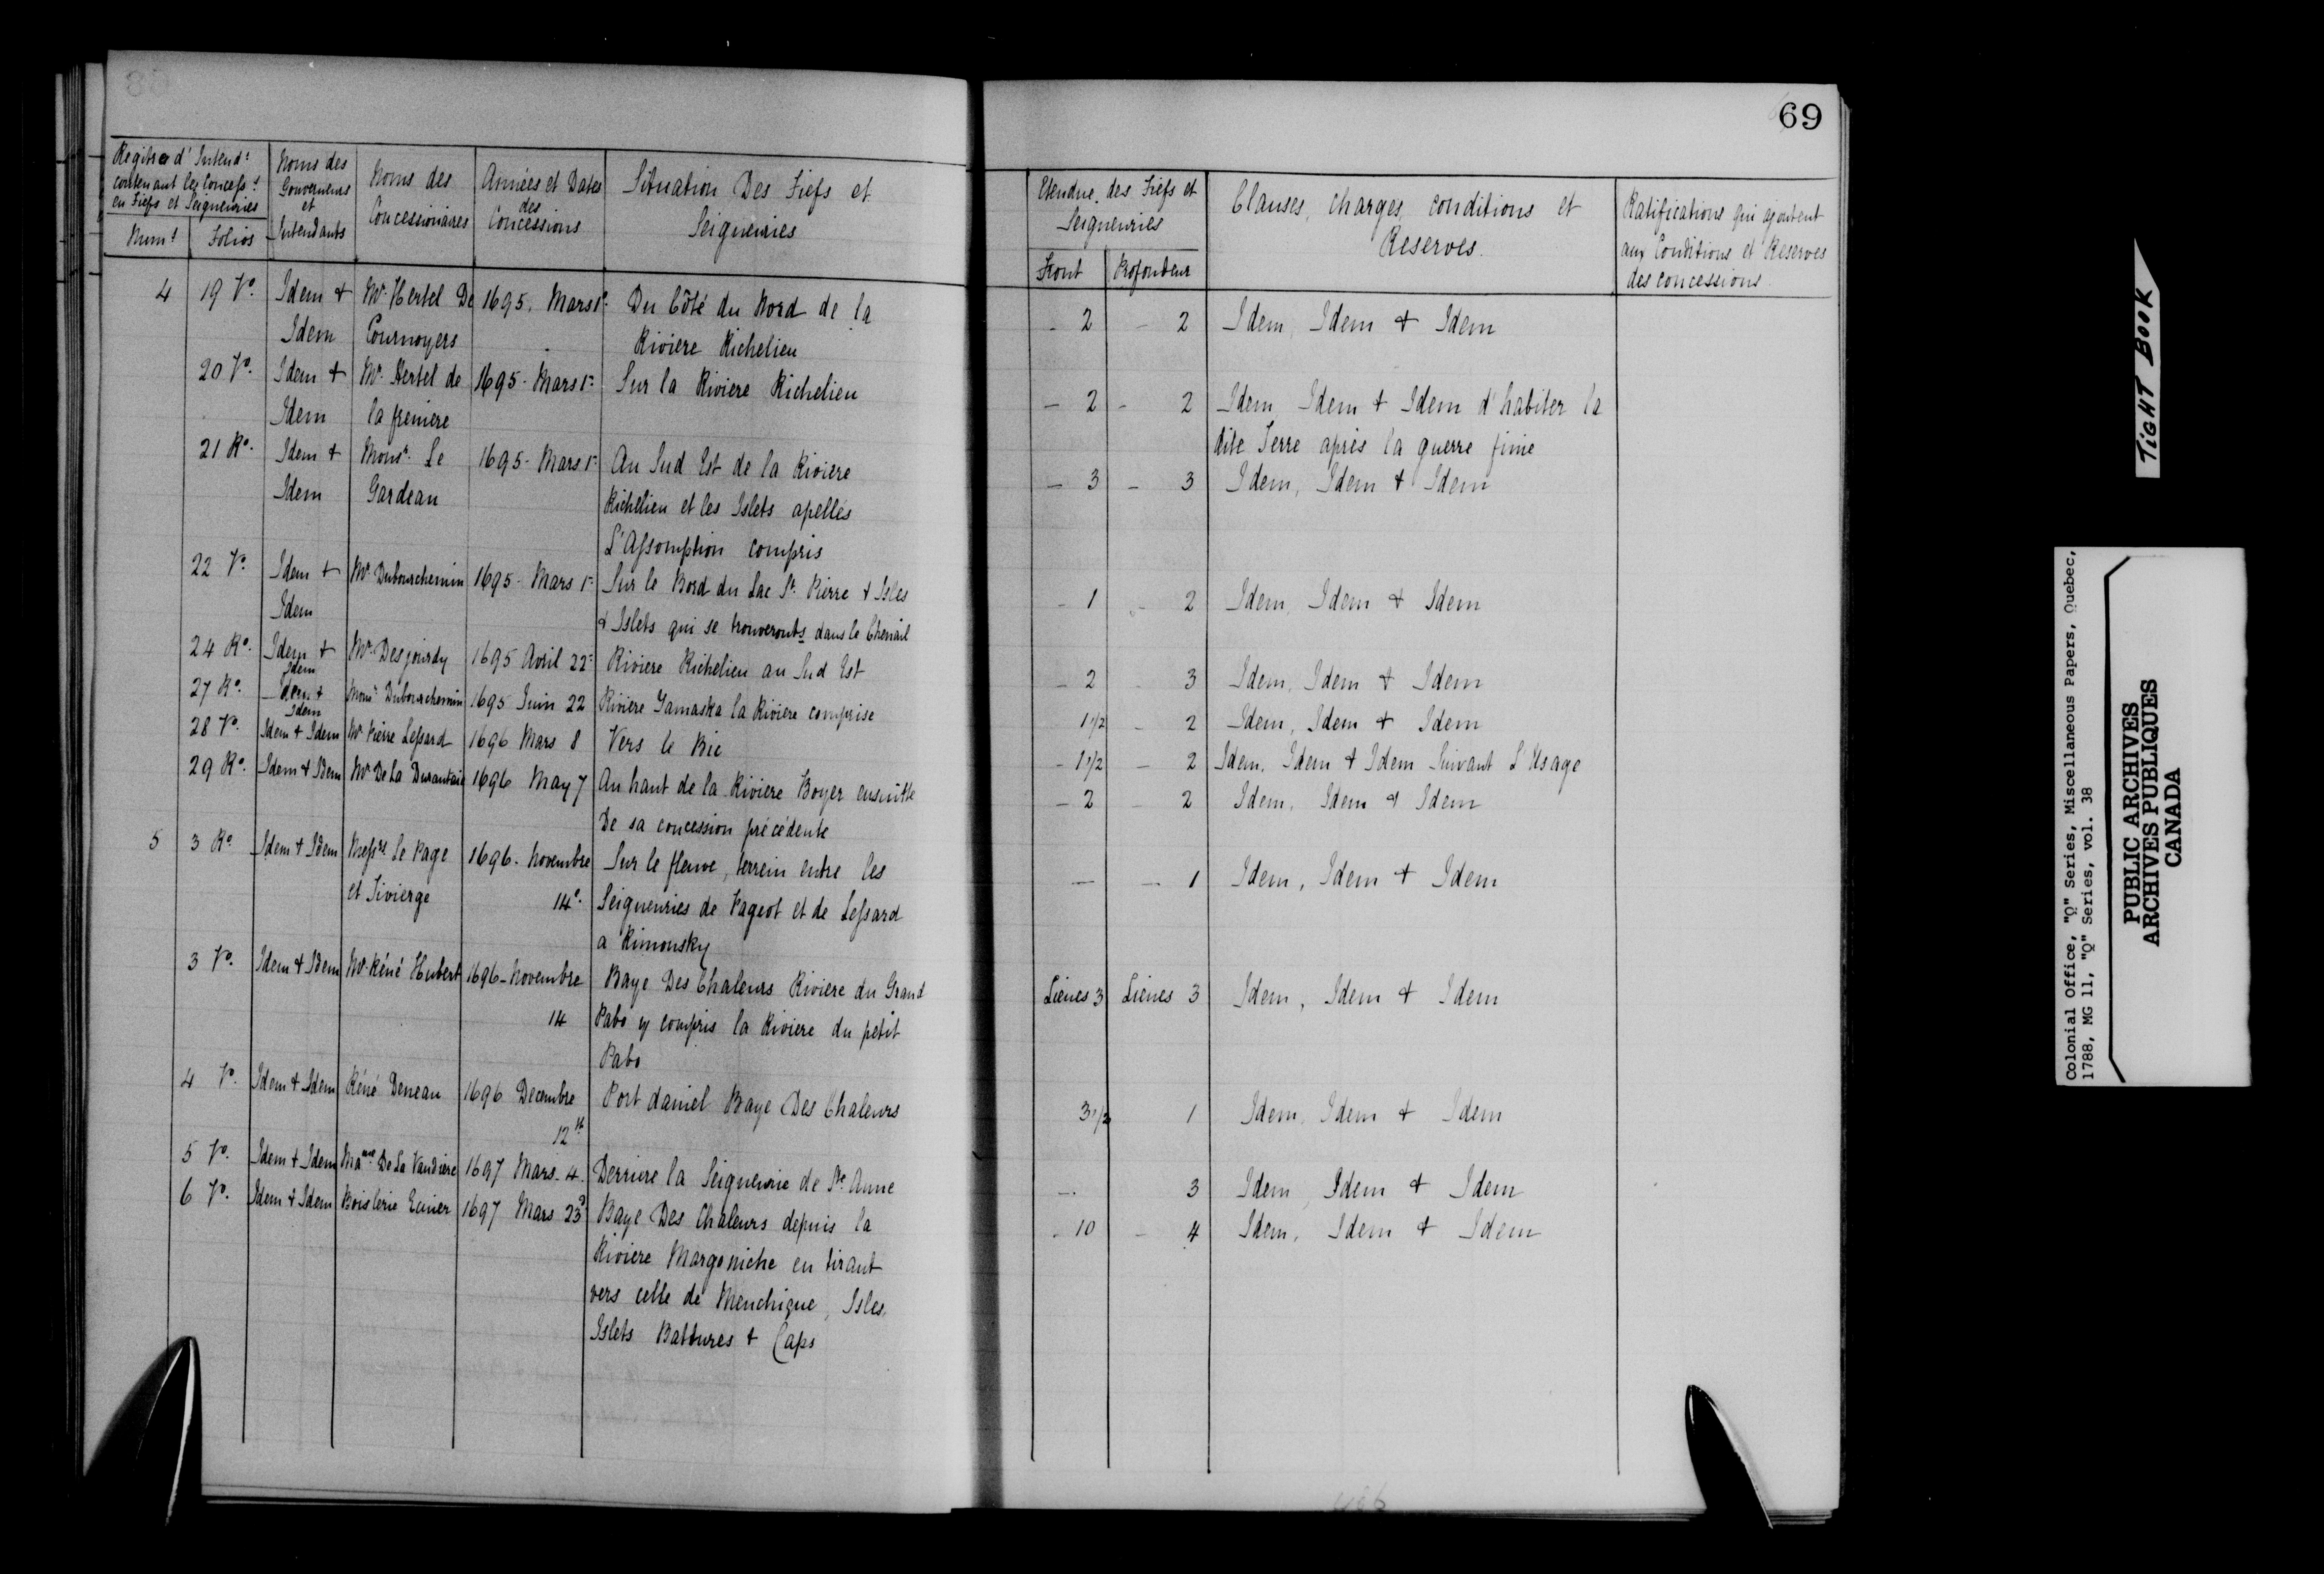 69
Regitre d'Intend.t
contenant les Concess.s
en Fiefs et Seigneuries
Num.s Folios
Noms des
Gouverneurs
et
Intendants
Noms des
Concessionaires
Années et Dates
des
Concessions
Situation Des Fiefs et
Seigneuries
Etendue des Fiefs et
Seigneuries
Front Profondeur
Clauses, charges, conditions et
Reserves.
Ratifications qui ajoutent
aux Conditions et Reserves
des concessions
4 19 Vo. Idem + Mr. Hertel De 1695. Mars 1r. Du Côté du Nord de la - 2 - 2 Idem, Idem + Idem
Idem Cournoyers Riviere Richelieu
20 Vo. Idem + Mr. Hertel de 1695 - Mars 1r. Sur la Riviere Richelieu - 2 - 2 Idem, Idem + Idem d'habiter la
Idem la freniere dite Terre après la guerre finie
21 Ro. Idem + Monsr. Le 1695 - Mars 1r. Au Sud Est de la Riviere - 3 - 3 Idem, Idem + Idem
Idem Gardeau Richelieu et les Islets apellés
L'Assomption compris
22 Vo. Idem + Mr. Dubourchemin 1695 - Mars 1r. Sur le Bord du Lac St. Pierre + Isles - 1 - 2 Idem, Idem + Idem
Idem + Islets qui se trouveronts dans le Chenail
24 Ro. Idem + Mr. Desjourdy 1695 Avril 22 Riviere Richelieu au Sud Est - 2 - 3 Idem, Idem + Idem
Idem
27 Ro. Idem + Monsr. Dubourchemin 1695 Juin 22 Riviere Yamaska la Riviere comprise 1 1/2 - 2 Idem, Idem + Idem
Idem
28 Vo. Idem + Idem Mr. Pierre Lessard 1696 Mars 8 Vers le Bic - 1 1/2 - 2 Idem, Idem + Idem Suivant L'Usage
29 Ro. Idem + Idem Mr. De La Durantaie 1696 May 7 Au haut de la Riviere Boyer ensuitte - 2 - 2 Idem, Idem + Idem
De sa concession précédente
5 3 Ro. Idem + Idem Messrs. le Page 1696 - Novembre Sur le fleuve, terrein entre les — - 1 Idem, Idem + Idem
et Tivierge 14e. Seigneuries de Pageot et de Lessard
a Rimousky
3 Vo. Idem + Idem Mr. Réné Hubert 1696 - Novembre Baye Des Chaleurs Riviere du Grand Lieues 3 Lieues 3 Idem, Idem + Idem
14 Pabo y compris la Riviere du petit
Pabo
4 Vo. Idem + Idem Réné Deneau 1696 Decembre Port daniel Baye Des Chaleurs 3 1/2 1 Idem, Idem + Idem
12
5 Vo. Idem + Idem Mame. De La Vaudiere 1697 Mars 4. Derriere la Seigneurie de Ste Anne — 3 Idem, Idem + Idem
6 Vo. Idem + Idem Boislerie Ecuier 1697 Mars 23 Baye Des Chaleurs depuis la - 10 - 4 Idem, Idem + Idem
Riviere Margoniche en tirant
vers celle de Menchique, Isles,
Islets Battures + Caps
TIGHT BOOK
Colonial Office, "Q" Series, Miscellaneous Papers, Quebec,
1788, MG 11, "Q" Series, vol. 38
PUBLIC ARCHIVES
ARCHIVES PUBLIQUES
CANADA